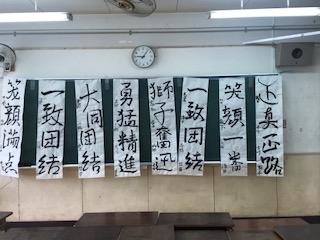 正真一路
笑顔一番
一致団結
獅子奮迅
勇猛精進
大同団結
一致団結
笑顔満点